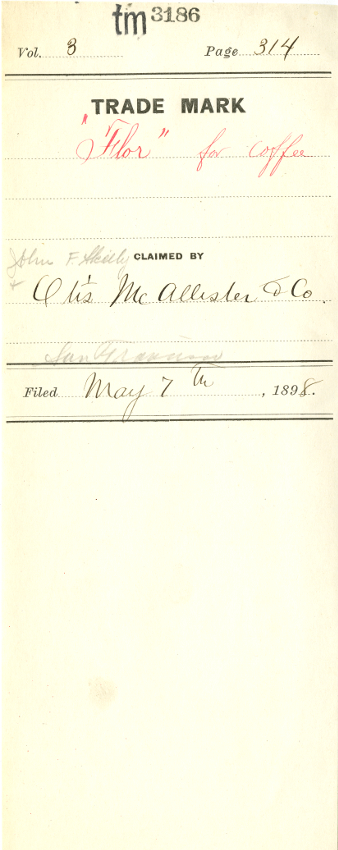 tm 3186
Vol. 3 Page 314
TRADE MARK
"Flor" for coffee
John F. CLAIMED BY
& Otis McAllister & Co.
San Francisco
Filed May 7th, 1898.